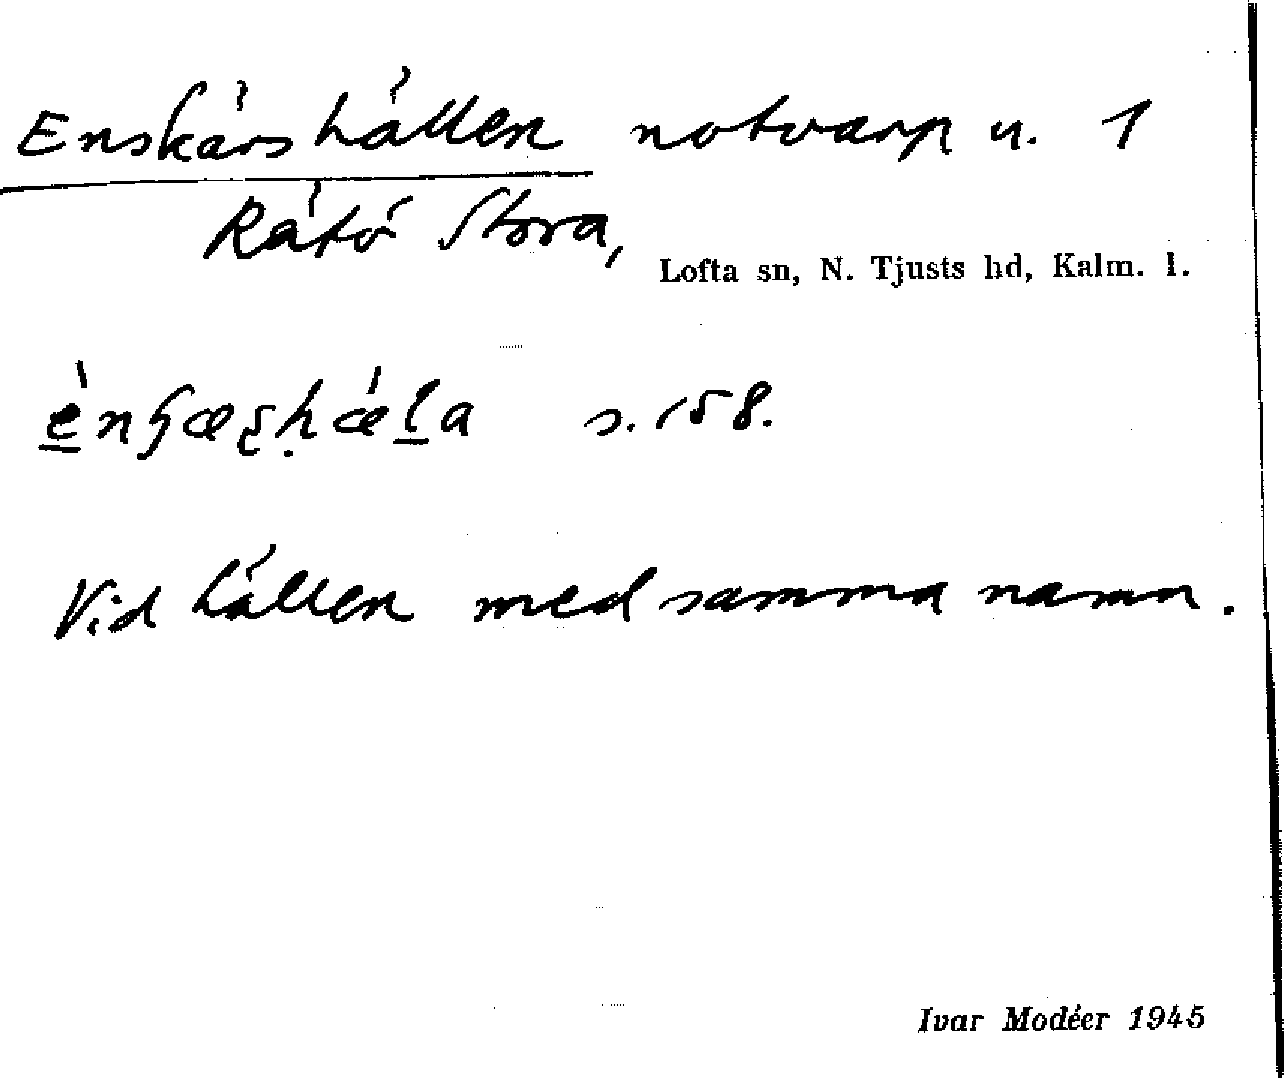 Enskärshällen notvarp u. 1
Rätö Stora,
Lofta sn, N. Tjusts hd, Kalm. l.
s. 158.
Vid hällen med samma namn.
Ivar Modéer 1945